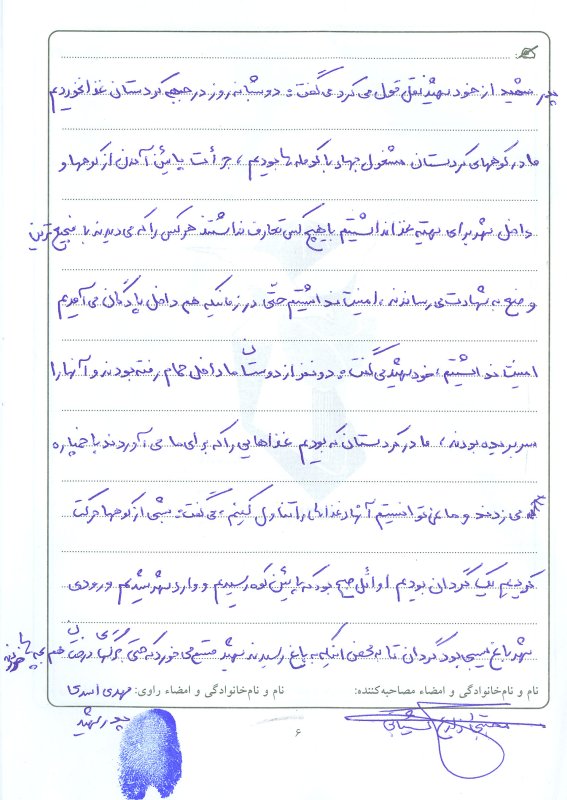 پدر شهید از خود شهید نقل قول می کرد می گفت: دو شبانه روز در جبهه کردستان غذا نخوردیم
ما در کوههای کردستان مشغول جهاد با کومله ها بودیم، جرأت پایین آمدن از کوهها و
داخل شهر برای تهیه غذا نداشتیم با هیچ کس تعارف نداشتند هر کس را که می دیدند با فجیع ترین
وضع به شهادت می رساندند. امنیت نداشتیم حتّی در زمانیکه هم داخل پادگان می آمدیم
امنیت نداشتیم، خود شهید می گفت: دو نفر از دوستان ما داخل حمام رفته بودند و آنها را
سر بریده بودند، ما در کردستان که بودیم غذاهایی را که برای ما می آوردند با خمپاره
می زدند و ما نمی توانستیم آنها را تناول کنیم، می گفت: شبی از کوهها حرکت
کردیم یک گردان بودیم اوائل صبح بود که پائین کوه رسیدیم و وارد شهر شدیم ورودی
شهر باغ سیبی بود گردان تا به محض اینکه به باغ رسیدند شهید قسم می خورد که حتّی برگهای درختان هم بچه ها خوردند
نام و نام‌خانوادگی و امضاء مصاحبه‌کننده:
نام و نام‌خانوادگی و امضاء راوی: مهدی اسدی
پدر شهید
۶